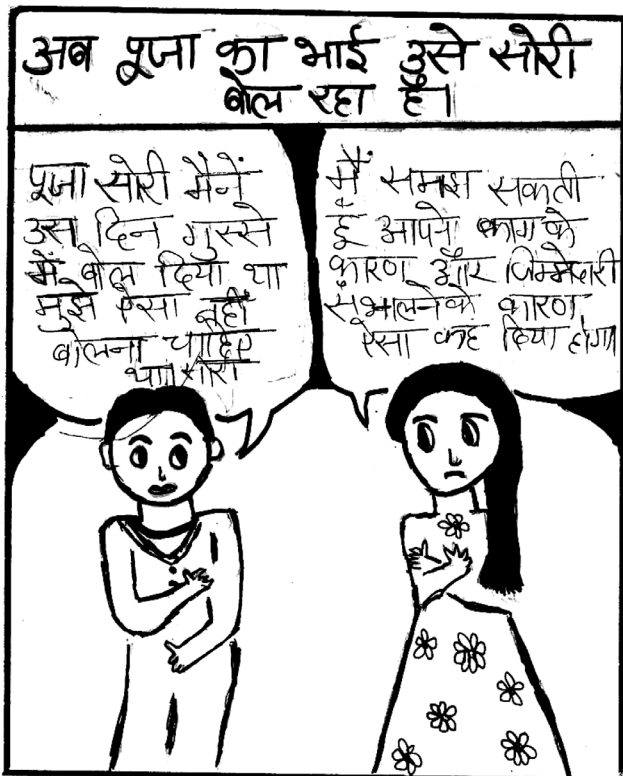 अब पूजा का भाई उसे सोरी
बोल रहा है।
पूजा सोरी मैनें
उस दिन गुस्से
में बोल दिया था
मुझे ऐसा नहीं
बोलना चाहिए
था। सोरी
मैं समझ सकती
हूं आपने काम के
कारण और जिम्मेदारी
संभालने के कारण
ऐसा कह दिया होगा